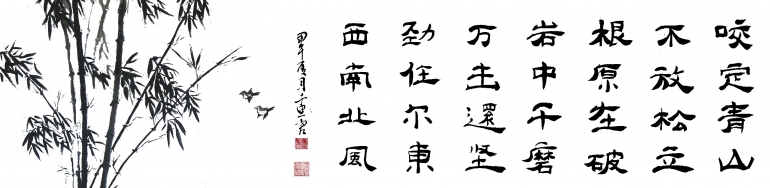 咬定青山
不放松立
根原在破
岩中千磨
万击還坚
劲任尔東
西南北風
甲午夏月